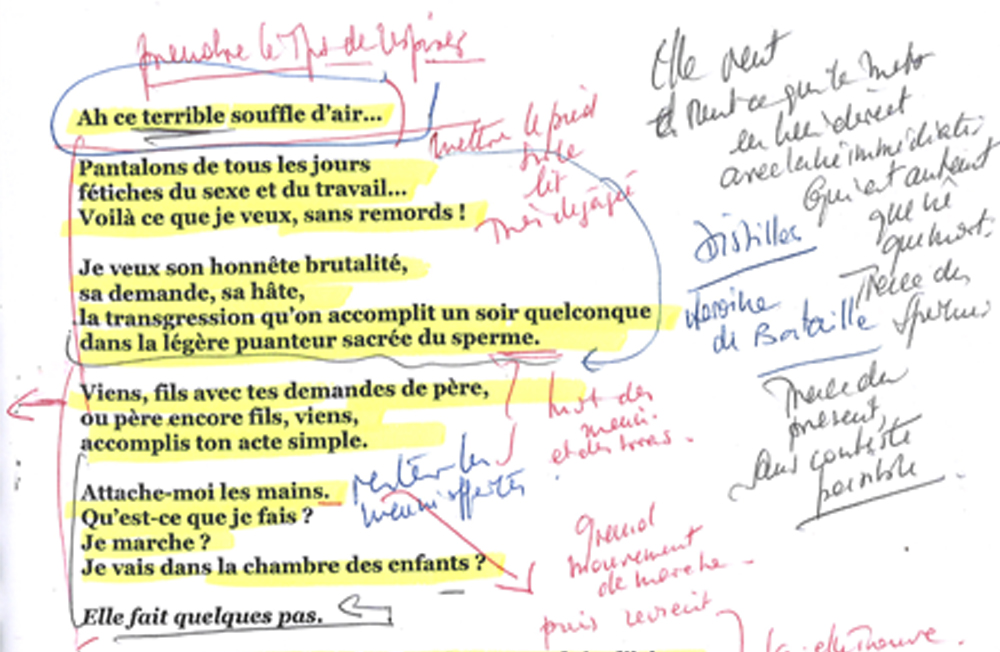 prendre le tps de respirer
Ah ce terrible souffle d'air...
Pantalons de tous les jours
fétiches du sexe et du travail...
Voilà ce que je veux, sans remords !
Je veux son honnête brutalité,
sa demande, sa hâte,
la transgression qu'on accomplit un soir quelconque
dans la légère puanteur sacrée du sperme.
Viens, fils avec tes demandes de père,
ou père encore fils, viens,
accomplis ton acte simple.
Attache-moi les mains.
Qu'est-ce que je fais ?
Je marche ?
Je vais dans la chambre des enfants ?
Elle fait quelques pas.
mettre le pied
sur le
lit
mot des
mains
et des bras.
les
mains offertes
Grand
mouvement
de marche
puis revient
Elle veut
en lien direct
avec
qui est autant
que
que mort.
Distiller
Héroïne
de Bataille
Trace du
sperme
Trace du
present,
sans conteste
possible